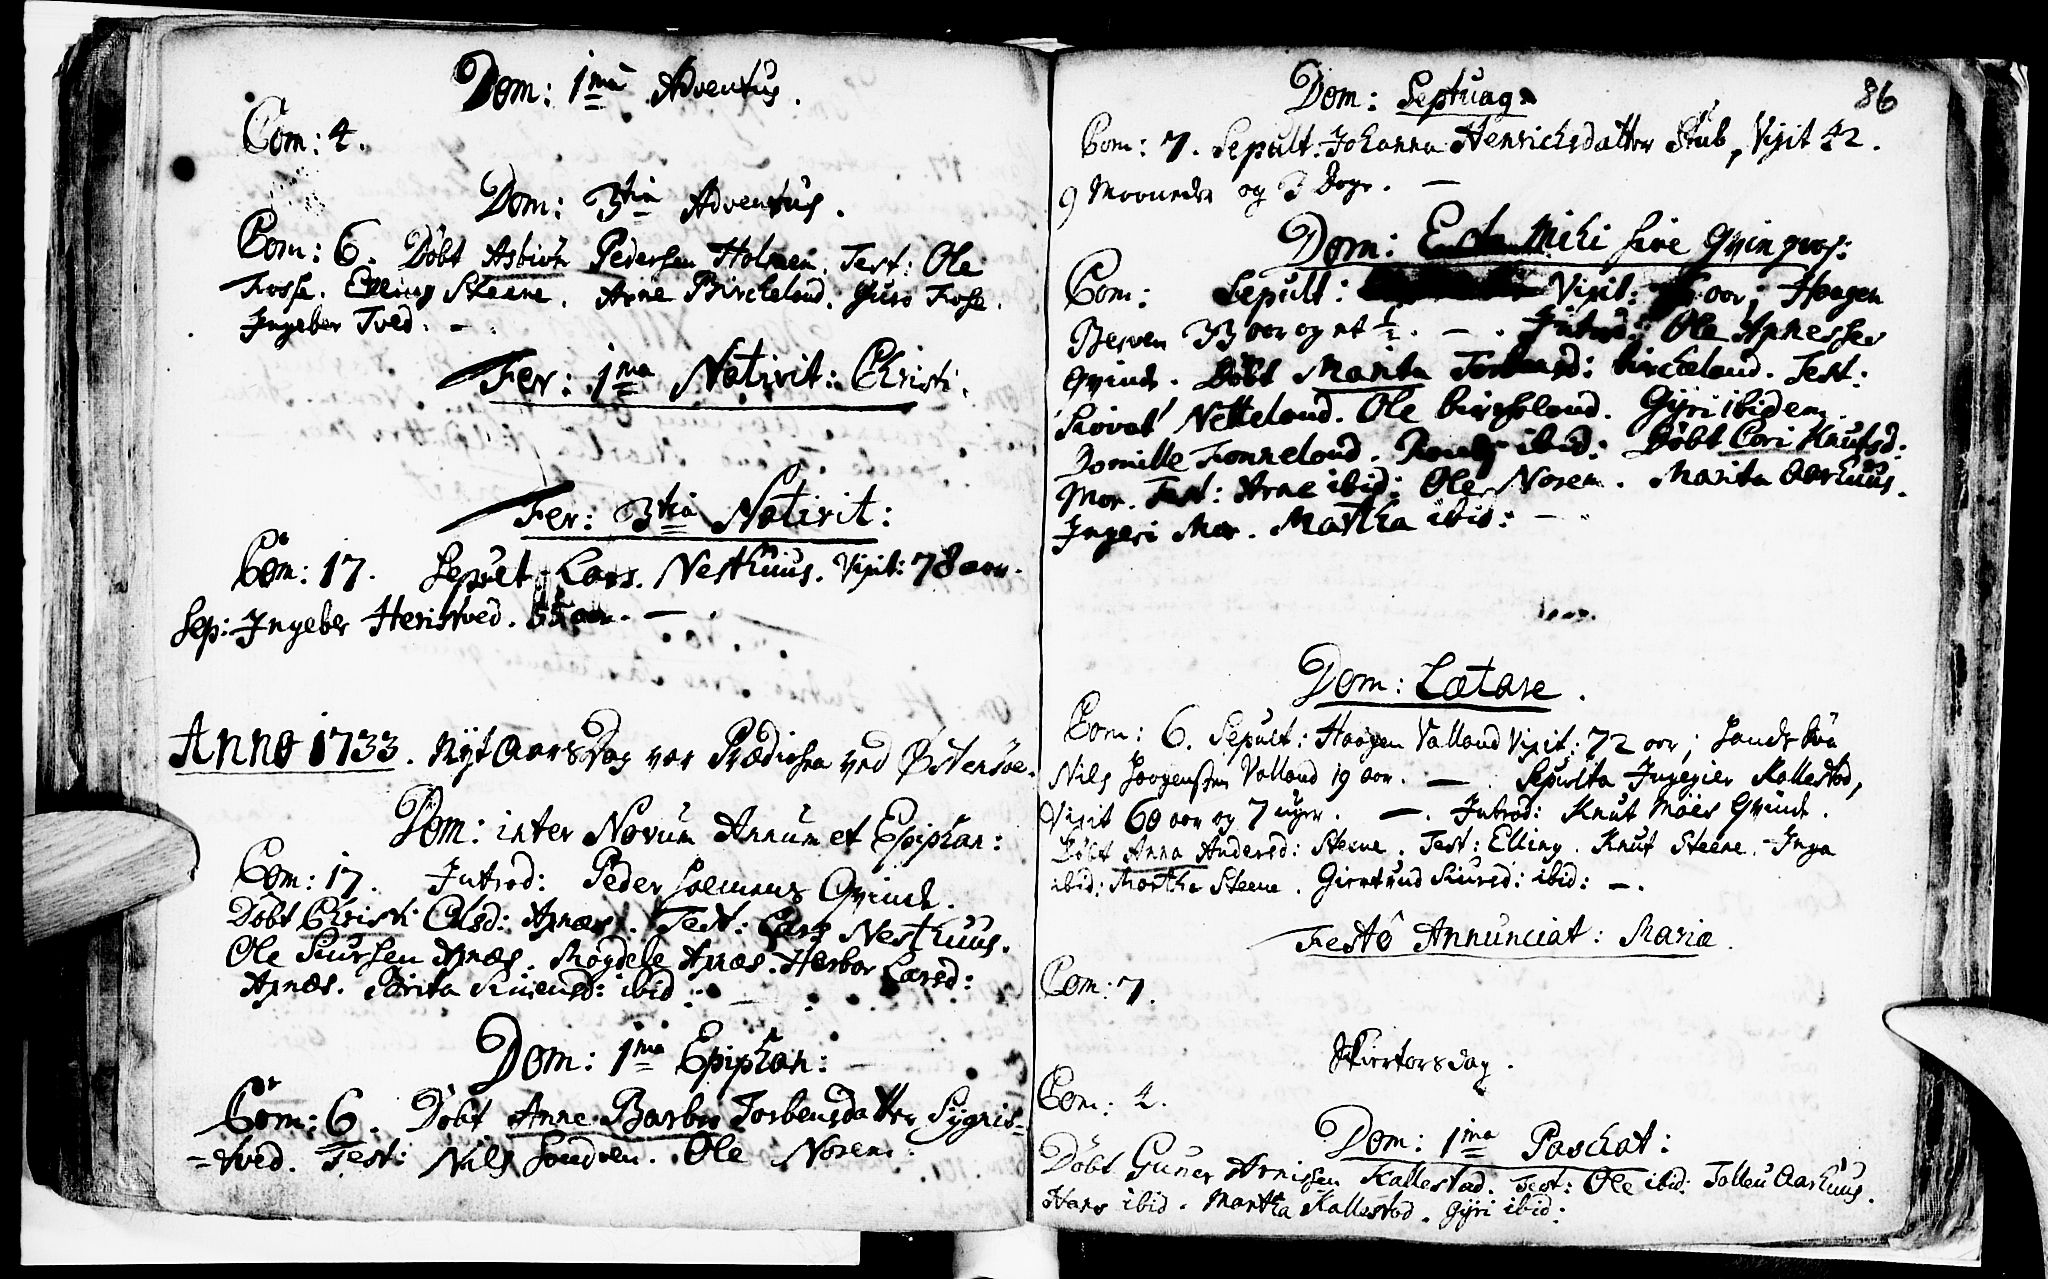 Dom: 1ma Adventus.
Com: 4.
Dom: 3tia Adventus.
Com: 6. Döbt Asbiörn Pedersen Holmen. Test: Ole
Fosse. Elling Steene. Arne Birckeland. Guro Fosse.
Ingebor Tved. —
Fer: 1ma Nativit: Christi.
Fer: 3tia Nativit:
Com: 17. Sepult Lars Nesthuus. Vixit: 78 aar.
Sep: Ingebor Heristved. 55 aar. —
Anno 1733. Nyt Aars Dag var Prædichen ved Östensöe.
Dom: inter Novum Annum et Epiphan:
Com: 17. Introd: Peder Qvinde.
Döbt Christi Olsd: Axnæs. Test: Lars Nesthuus.
Ole Siursen Axnæs. Magdele Axnæs. Herbor Larsd:
Axnæs. Brita ibid: —
Dom: 1ma Epiphan:
Com: 6. Döbt Anne Barbro Torbensdatter Sygnis-
-tved. Test: Nils Sandven. Ole Noreim.
86
Dom: Septuag.
Com: 7. Sepult: Johanna Henrichsdatter Stub, Vixit 42.
9 Maaneder og 3 Dage. —
Dom: Esto Mihi sive Qvinqvag:
Com: Sepult: Vixit: aar; Haagen
Berven 33 aar og et ½. — . Introd: Ole Axnesses
Qvinde. Döbt Marita Torbensd: Birckeland. Test:
Siovat Netteland. Ole Birckeland. Gyri ibidem.
Domille Tonneland. ibid: Döbt Cari Knutsd:
Moe. Test: Arne ibid: Ole Norem. Marita Aarhuus.
Ingeri Moe. Martha ibid: —
Dom: Lætare.
Com: 6. Sepult: Haagen Valland Vixit: 72 aar;
Nils Haagensen Valland 19 aar. — . Sepulta Ingegier Kallestad,
Vixit 60 aar og 7 uger. — . Introd: Knut Möes Qvinde.
Döbt Anna Andersd: Steene. Test: Elling. Knut Steene. Inga
ibid: Martha Steene. Giertrud Siursd: ibid: —.
Festo Annunciat: Mariæ.
Com: 7.
Skiertorsdag.
Com: 2.
Dom: 1ma Paschat:
Döbt Guner Arnissen Kallestad. Test: Ole ibid: Tolleu Aarhuus.
Hans ibid. Martha Kallestad. Gyri ibid: